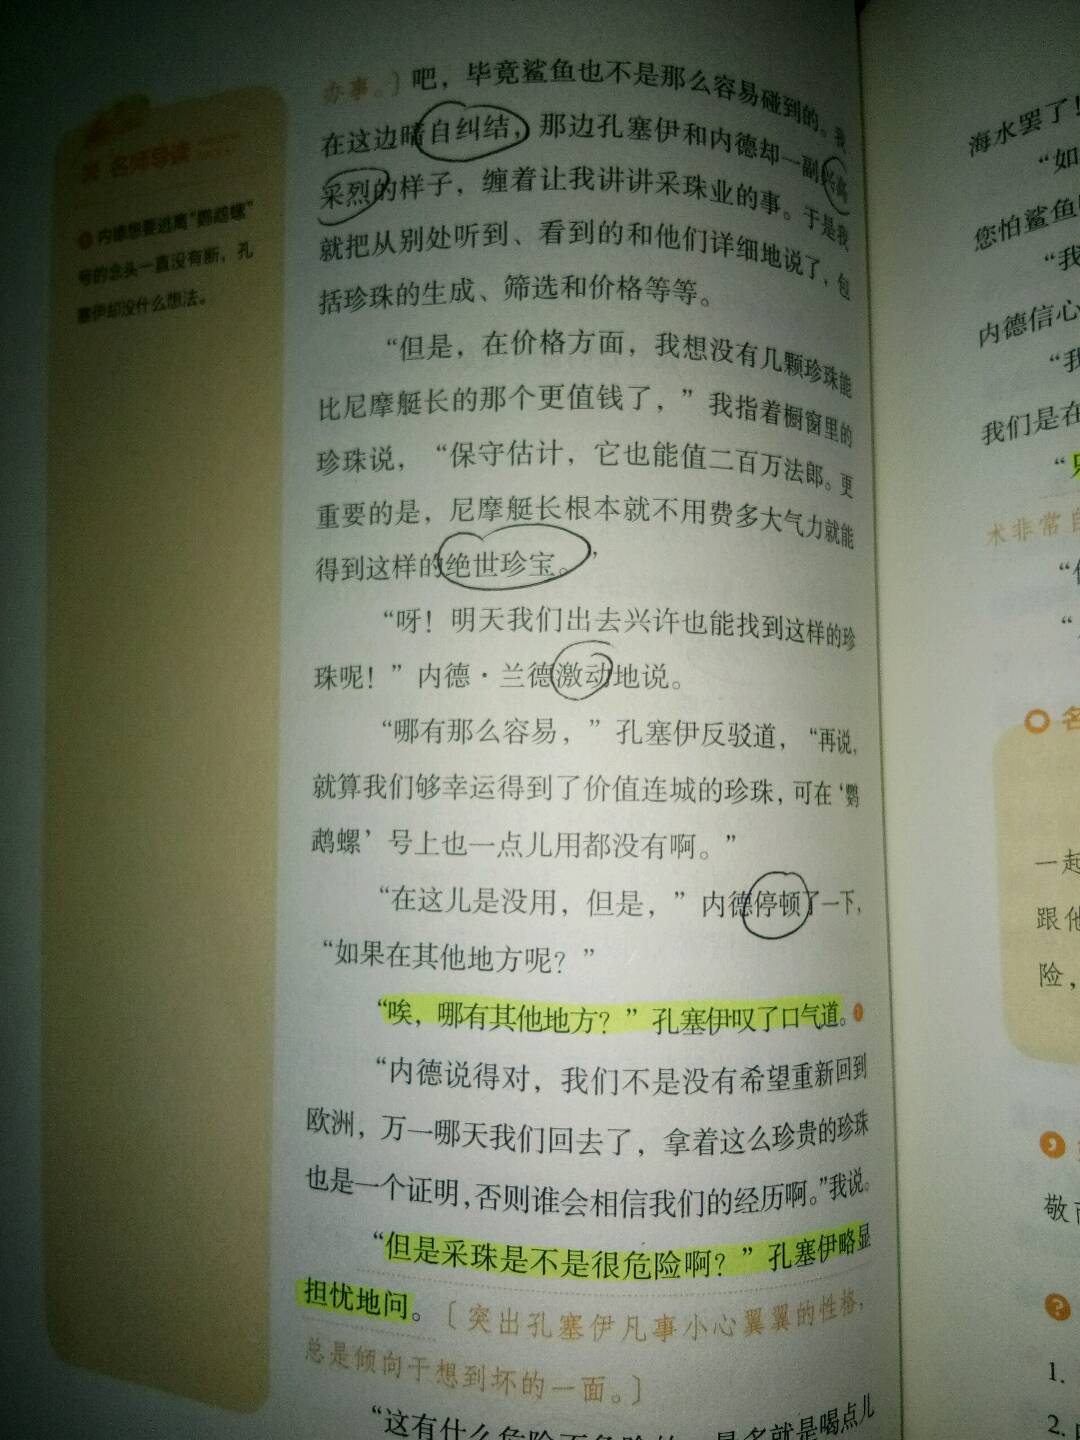 名师导读
❶内德想要逃离“鹦鹉螺”
号的念头一直没有断，孔
塞伊却没什么想法。
办事。〕吧，毕竟鲨鱼也不是那么容易碰到的。我
在这边暗自纠结，那边孔塞伊和内德却一副兴高
采烈的样子，缠着让我讲讲采珠业的事。于是我
就把从别处听到、看到的和他们详细地说了，包
括珍珠的生成、筛选和价格等等。
“但是，在价格方面，我想没有几颗珍珠能
比尼摩艇长的那个更值钱了，”我指着橱窗里的
珍珠说，“保守估计，它也能值二百万法郎。更
重要的是，尼摩艇长根本就不用费多大气力就能
得到这样的绝世珍宝。”
“呀！明天我们出去兴许也能找到这样的珍
珠呢！”内德·兰德激动地说。
“哪有那么容易，”孔塞伊反驳道，“再说，
就算我们够幸运得到了价值连城的珍珠，可在‘鹦
鹉螺’号上也一点儿用都没有啊。”
“在这儿是没用，但是，”内德停顿了一下，
“如果在其他地方呢？”
“唉，哪有其他地方？”孔塞伊叹了口气道。❶
“内德说得对，我们不是没有希望重新回到
欧洲，万一哪天我们回去了，拿着这么珍贵的珍珠
也是一个证明，否则谁会相信我们的经历啊。”我说。
“但是采珠是不是很危险啊？”孔塞伊略显
担忧地问。〔突出孔塞伊凡事小心翼翼的性格，
总是倾向于想到坏的一面。〕
“这有什么危险
最多就是喝点儿
海水罢了！
“如
您怕鲨鱼
“我
内德信心
“我
我们是在
“
术非常
“
“
名
一起
跟他
险，
敬
1.
2.